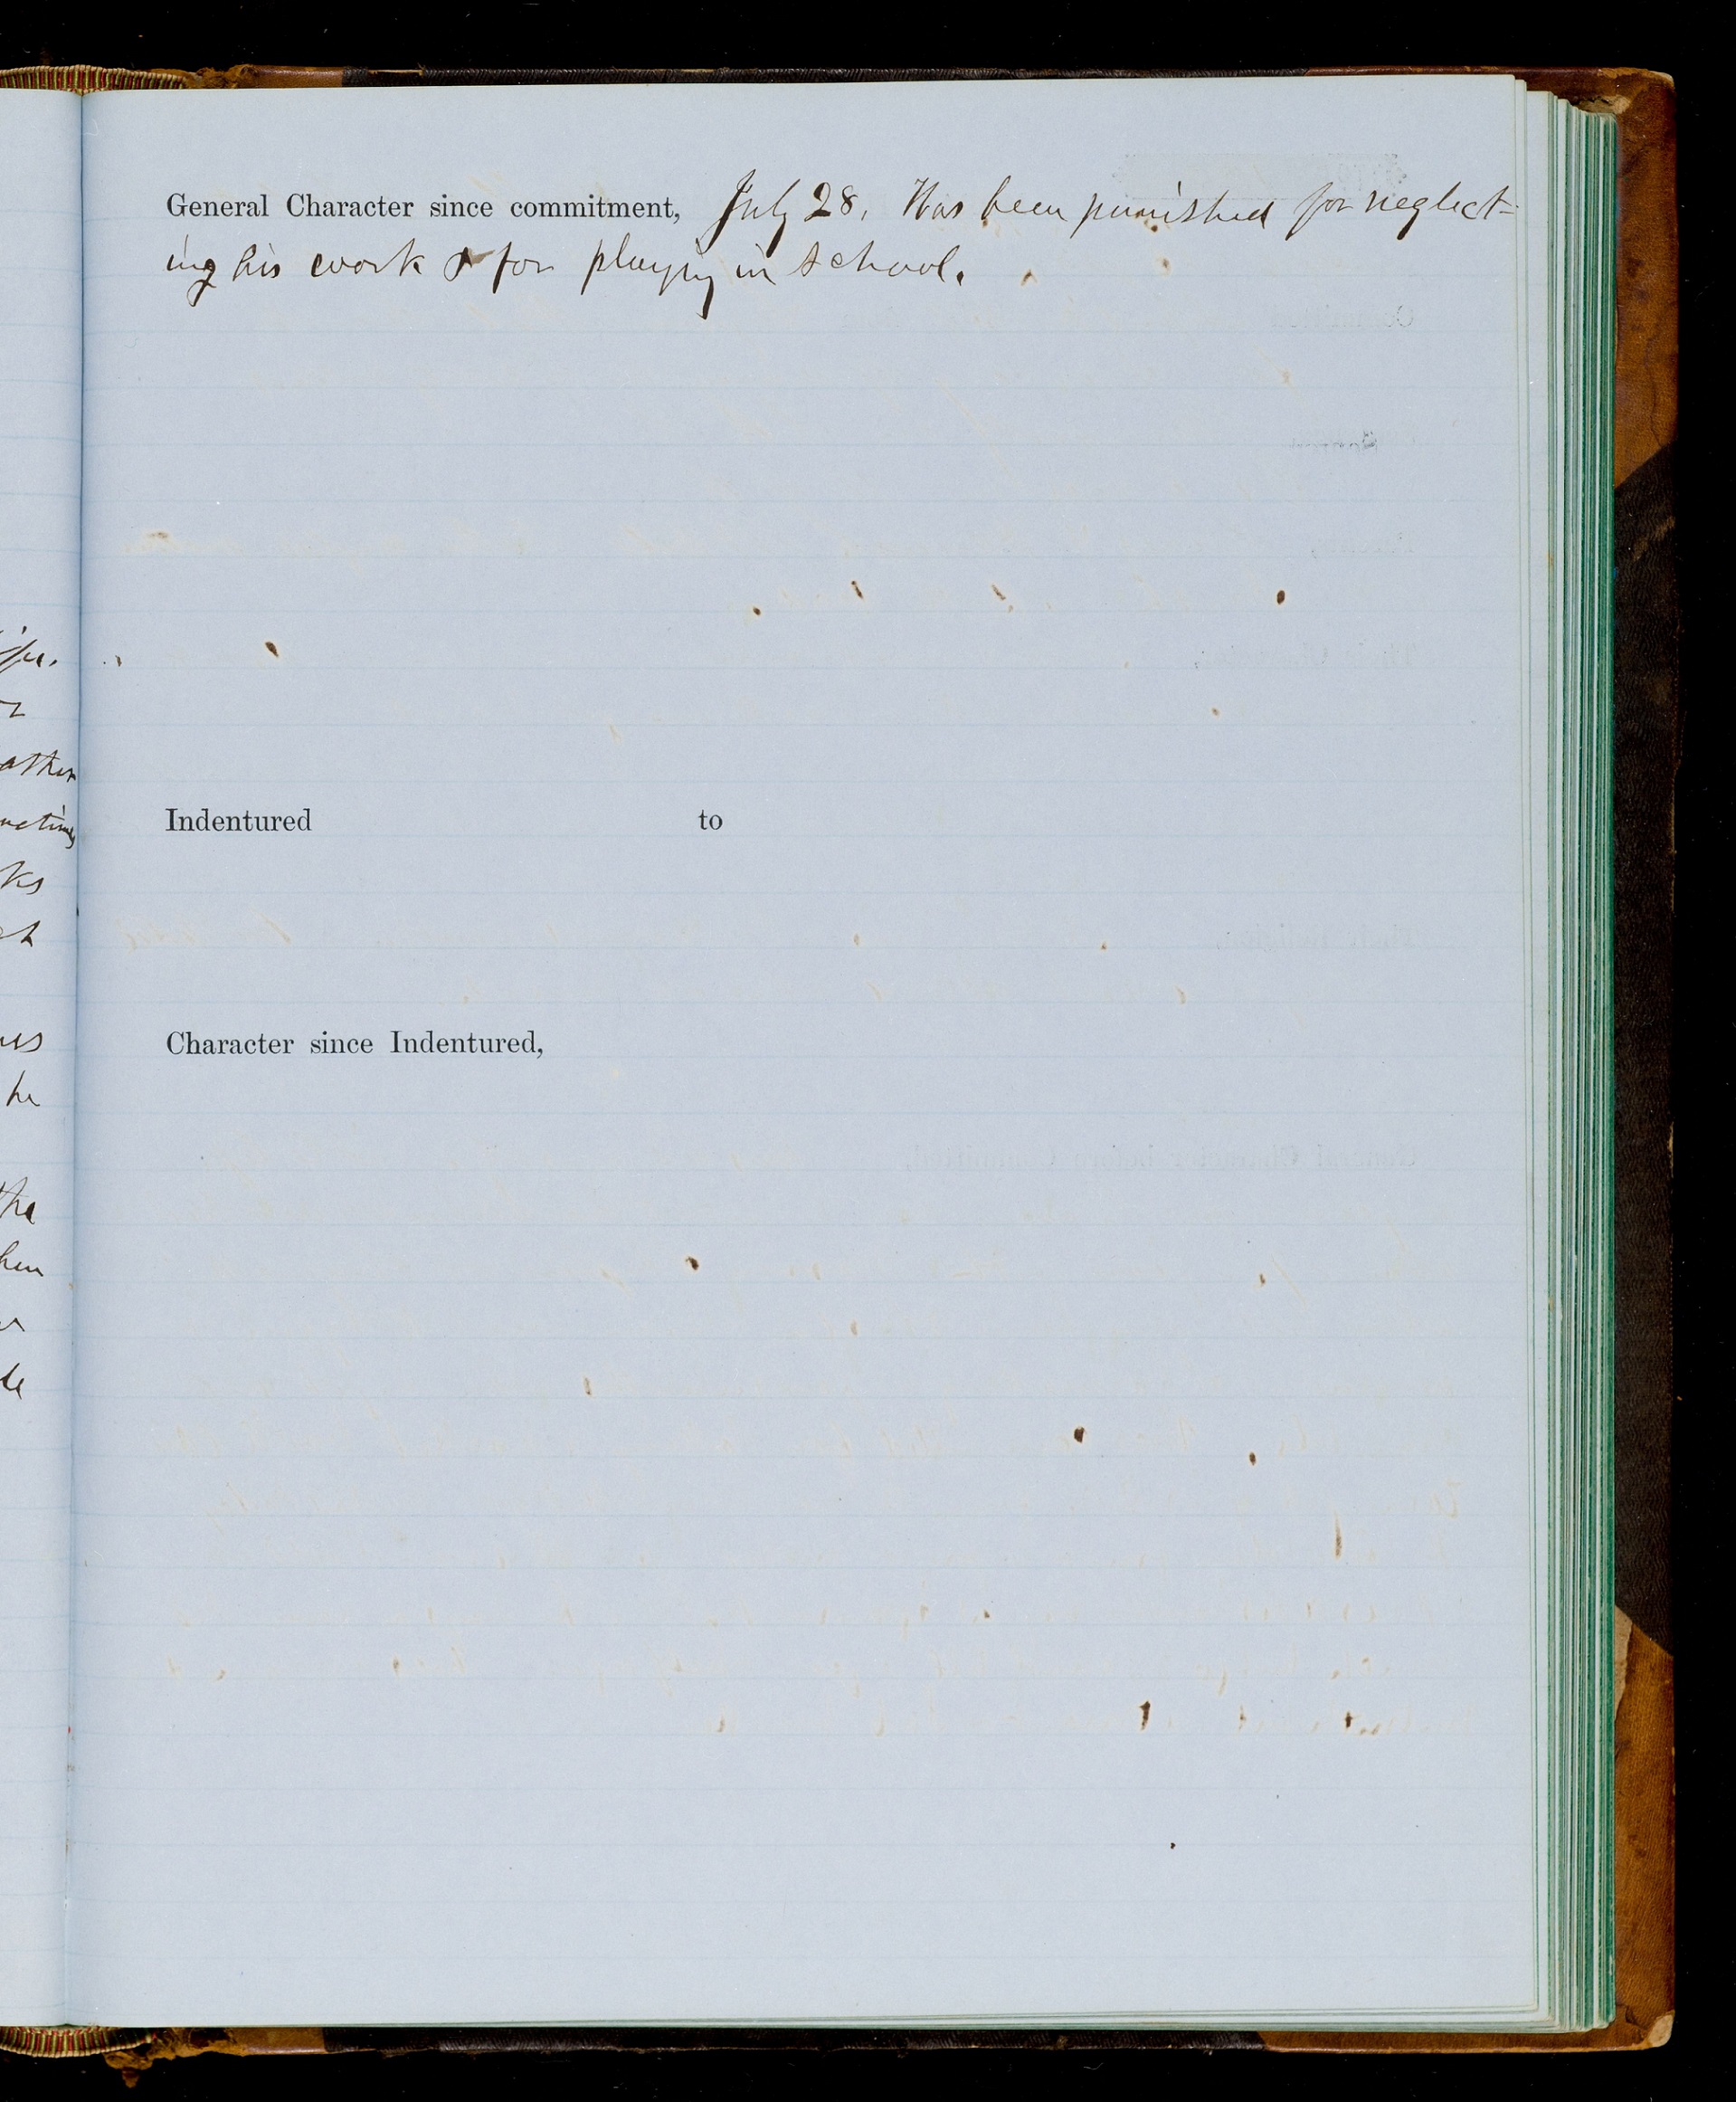 General Character since commitment, July 28. Has been punished for neglect-
ing his work & for playing in school.
Indentured to
Character since Indentured,